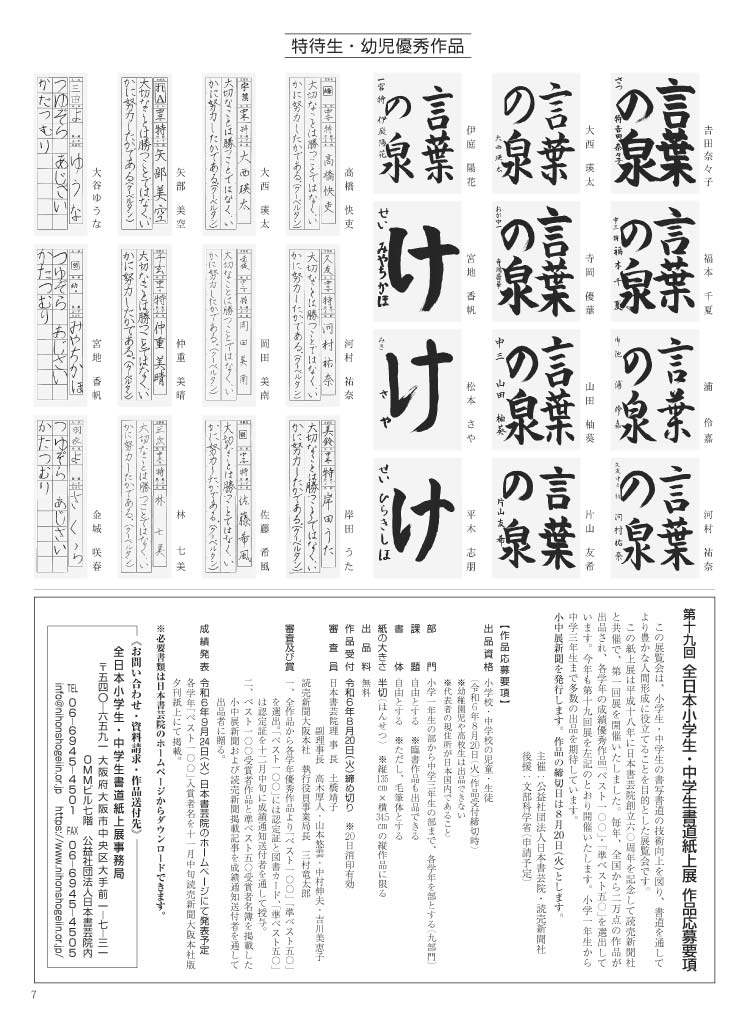 特待生・幼児優秀作品
吉田奈々子
言葉
の泉
大西 瑛太
言葉
の泉
大西瑛太
伊庭 陽花
言葉
の泉
一宮 特 伊庭陽花
福本 千夏
言葉
の泉
寺岡 優華
言葉
の泉
宮地 香帆
け
せい みやちかほ
浦 伶嘉
言葉
の泉
山田 柚葵
言葉
の泉
中三 山田 柚葵
松本 さや
け
みき さや
河村 祐奈
言葉
の泉
片山 友希
言葉
の泉
片山友希
平木 志朋
け
せい ひらきしほ
高橋 快吏
高橋快吏
大切なことは勝つことではなく、い
かに努力したかである。(クーベルタン)
大西 瑛太
大西瑛太
大切なことは勝つことではなく、い
かに努力したかである。(クーベルタン)
矢部 美空
矢部美空
大切なことは勝つことではなく、い
かに努力したかである。(クーベルタン)
大谷ゆうな
ゆうな
つゆぞら あじさい
かたつむり
河村 祐奈
河村祐奈
大切なことは勝つことではなく、い
かに努力したかである。(クーベルタン)
岡田 美南
岡田美南
大切なことは勝つことではなく、い
かに努力したかである。(クーベルタン)
仲重 美晴
仲重美晴
大切なことは勝つことではなく、い
かに努力したかである。(クーベルタン)
宮地 香帆
みやちかほ
つゆぞら あじさい
かたつむり
岸田 うた
岸田うた
大切なことは勝つことではなく、い
かに努力したかである。(クーベルタン)
佐藤 希風
佐藤希風
大切なことは勝つことではなく、い
かに努力したかである。(クーベルタン)
林 七美
林 七美
大切なことは勝つことではなく、い
かに努力したかである。(クーベルタン)
金城 咲春
さくら
つゆぞら あじさい
かたつむり
第十九回 全日本小学生・中学生書道紙上展 作品応募要項
この展覧会は、小学生・中学生の書写書道の技術向上を図り、書道を通して
より豊かな人間形成に役立てることを目的とした展覧会です。
この紙上展は平成十八年に日本書芸院創立六〇周年を記念して読売新聞社
と共催で、第一回展を開催いたしました。毎年、全国から二万点の作品が
出品され、各学年の成績優秀作品「ベスト一〇〇」・「準ベスト五〇」を選出して
います。今年も第十九回展を左記のとおり開催いたします。小学一年生から
中学三年生まで多数の出品を期待しています。
小中展新聞を発行します。作品の締切日は8月20日(火)とします。
主催・公益社団法人日本書芸院・読売新聞社
後援・文部科学省(申請予定)
【作品応募要項】
出品資格 小学校・中学校の児童・生徒
(令和6年8月20日(火)作品受付締切時)
※幼稚園児や高校生は出品できない
※代表者の現住所が日本国内であること
部門 小学一年生の部から中学三年生の部まで、各学年を部とする(九部門)
課題 自由とする ※臨書作品も出品できる
書体 自由とする ※ただし、毛筆体とする
紙の大きさ 半切(はんせつ) ※縦135cm×横34.5cmの縦作品に限る
出品料 無料
作品受付 令和6年8月20日(火)締め切り ※20日消印有効
審査員 日本書芸院理事長 土橋靖子
副理事長 高木厚人・山本悠雲・中村伸夫・吉川美恵子
読売新聞大阪本社 執行役員事業局長 三村竜太郎
審査及び賞 一、全作品から各学年優秀作品より「ベスト一〇〇」「準ベスト五〇」
を選出「ベスト一〇〇」には認定証と図書カード、「準ベスト五〇」
は認定証を十二月中旬に成績通知送付者を通して授与。
二、ベスト一〇〇受賞者作品と準ベスト五〇受賞者名簿を掲載した
小中展新聞および読売新聞掲載記事を成績通知送付者を通して
出品者に贈る。
成績発表 令和6年9月24日(火) 日本書芸院のホームページにて発表予定
各学年「ベスト一〇〇」入賞者名を十一月中旬読売新聞大阪本社版
夕刊紙上にて掲載。
※必要書類は日本書芸院のホームページからダウンロードできます。
《お問い合わせ・資料請求・作品送付先》
全日本小学生・中学生書道紙上展事務局
〒五四〇-六五九一 大阪府大阪市中央区大手前一-七-三一
OMMビル七階 公益社団法人日本書芸院内
TEL 06-6945-4501 FAX 06-6945-4505
info@nihonshogeiin.or.jp https://www.nihonshogeiin.or.jp/
7